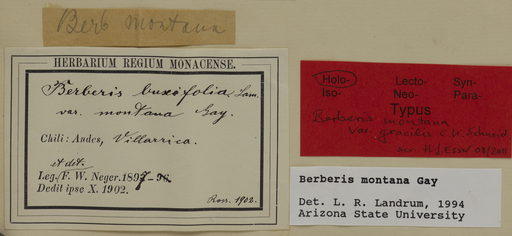 Berb montana
HERBARIUM REGIUM MONACENSE.
Berberis buxifolia Lam.
var. montana Gay.
Chili: Andes, Villarrica.
et det.
Leg. F. W. Neger. 1897-98.
Dedit ipse X. 1902.
Ross. 1902.
Holo- Lecto- Syn-
Iso- Neo- Para-
Typus
Berberis montana
var. gracilis C.K. Schneid.
Berberis montana Gay
Det. L. R. Landrum, 1994
Arizona State University